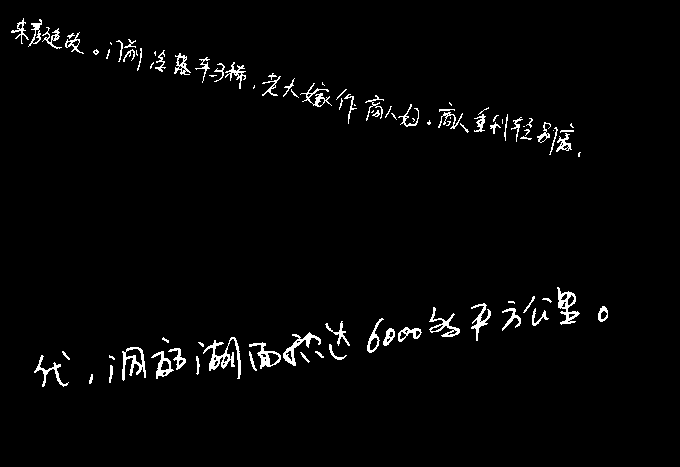 来颜色故。门前冷落车马稀,老大嫁作商人妇。商人重利轻别离,
代,洞庭湖面积达6000多平方公里。